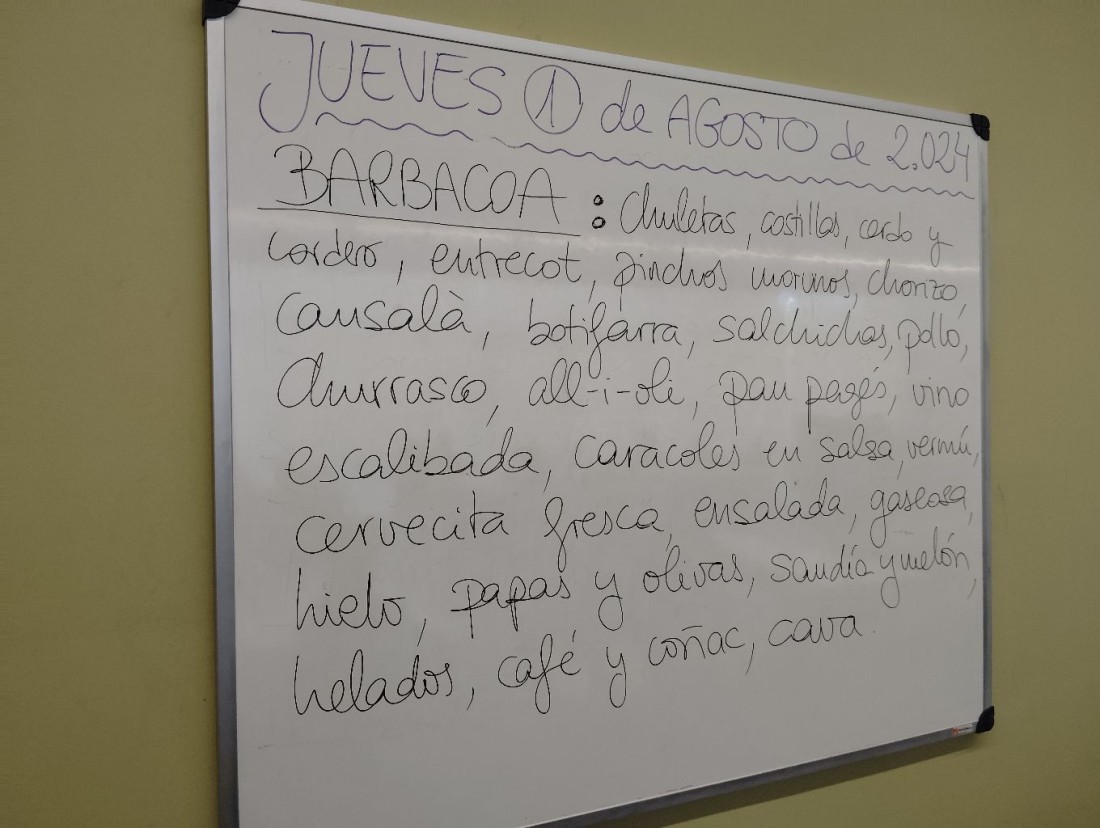 JUEVES 1 de AGOSTO de 2.024
BARBACOA : Chuletas, costillas, cerdo y
cordero, entrecot, pinchos morunos, chorizo,
cansalà, botifarra, salchichas, pollo,
Churrasco, all-i-oli, pan pagés, vino
escalibada, caracoles en salsa, vermú,
cervecita fresca, ensalada, gaseosa,
hielo, papas y olivas, sandía y melón,
helados, café y coñac, cava.